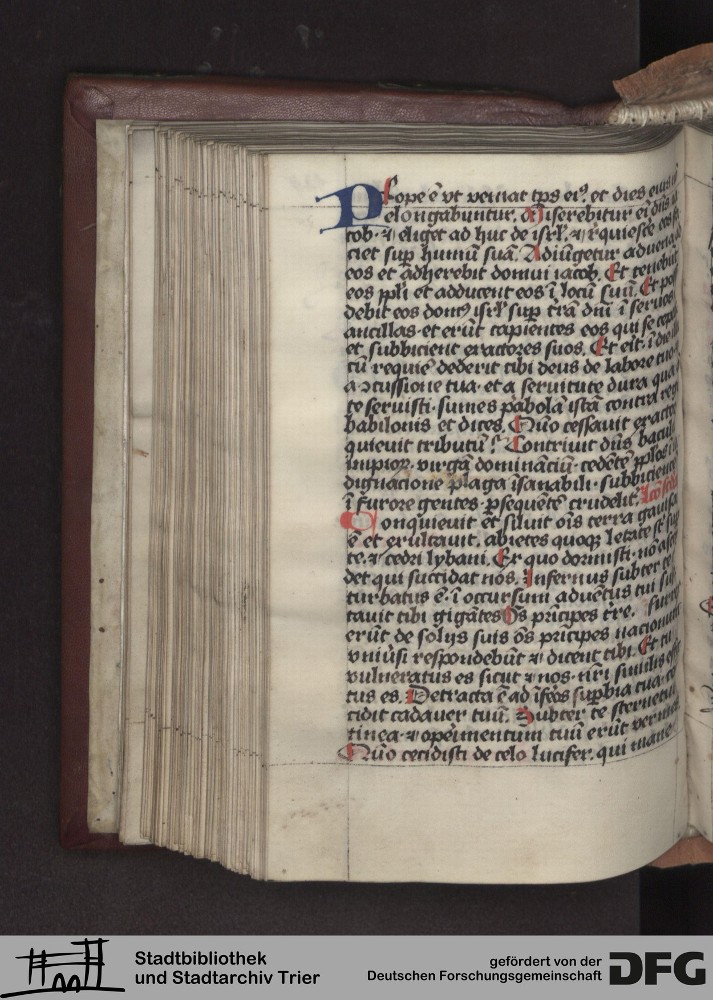 Prope ē vt veniat tps eiꝰ. et dies eius nō
elongabuntur. Miserebitur ei dūs ia
cob. ⁊ eliget ad huc de isrl̄. ⁊ reꝗescē eos fa
ciet sup humū suā. Adiūgetur aduena
eos et adherebit domui iacob. Et tenebūt
eos ppl̄i et adducent eos ī locū suū. Et pos
debit eos domꝰ isrl̄ sup trā dnī ī seruos
ancillas. et erūt capientes eos qui se cepāt
et subbicient exactores suos. Et erit. ī die illa
cū requiē dederit tibi deus de labore tuo
a ꝯcussione tua. et a seruitute dura qua
te seruisti. sumes pabolā istā contra regē
babilonis et dices. Quō cessauit exactor
quieuit tributū? Contriuit dn̄s baculū
impioꝝ. virgā dominanciū. cedētē pplos ī
dignacione plaga īsanabili. subbiciente
ī furore gentes. ꝑsequētē crudelit.
Conquieuit et siluit oīs terra gauisa
ē et exultauit. abietes quoqꝫ letate st̄ sup
te. ⁊ cedri lybani. Ex quo dormisti. nō ascē
det qui succidat nos. Infernus subter te
turbatus ē. ī occursum aduētus tui sus
tauit tibi gigātes Oēs prīcipes tr̄e. surrex
erūt de solijs suis oēs prīcipes nacionum
vniūsi respondebūt ⁊ dicent tibi. Et tu
vulneratus es sicut ⁊ nos. nr̄i similis effc
tus es. Detracta ē ad īferos supbia tua. cō
cidit cadauer tuū. Subter te sternetur
tinea. ⁊ operimentum tuū erūt vermes
Quō cecidisti de celo lucifer. qui mane
Stadtbibliothek
und Stadtarchiv Trier
gefördert von der
Deutschen Forschungsgemeinschaft
DFG